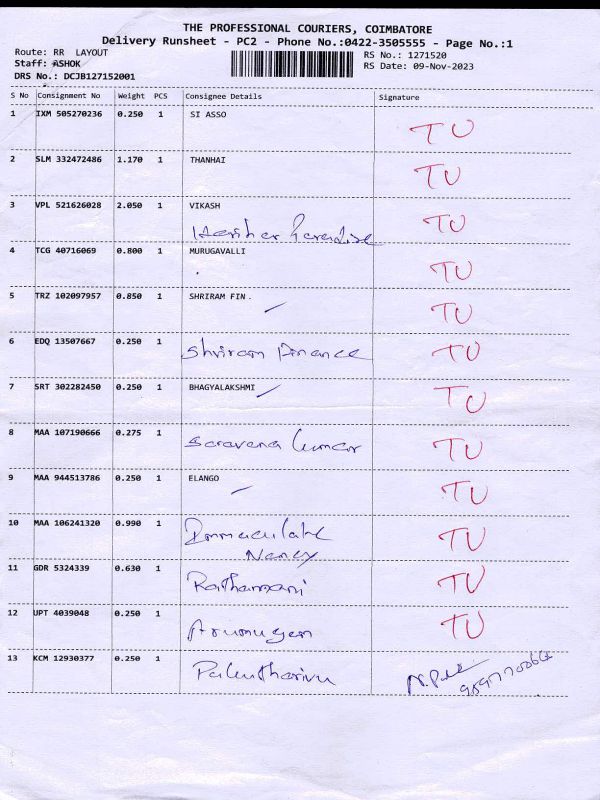 THE PROFESSIONAL COURIERS, COIMBATORE
Delivery Runsheet - PC2 - Phone No.:0422-3505555 - Page No.:1
Route: RR LAYOUT
Staff: ASHOK
DRS No.: DCJB127152001
RS No.: 1271520
RS Date: 09-Nov-2023
S No Consignment No Weight PCS Consignee Details Signature
1 IXM 505270236 0.250 1 SI ASSO TU
2 SLM 332472486 1.170 1 THANHAI TU
3 VPL 521626028 2.050 1 VIKASH TU
Harihar Paradise
4 TCG 40716069 0.800 1 MURUGAVALLI TU
5 TRZ 102097957 0.850 1 SHRIRAM FIN. TU
6 EDQ 13507667 0.250 1 Shriram Finance TU
7 SRT 302282450 0.250 1 BHAGYALAKSHMI TU
8 MAA 107190666 0.275 1 Saravana Kumar TU
9 MAA 944513786 0.250 1 ELANGO TU
10 MAA 106241320 0.990 1 Immaculate TU
Nancy
11 GDR 5324339 0.630 1 Rathamani TU
12 UPT 4039048 0.250 1 Arumugam TU
13 KCM 12930377 0.250 1